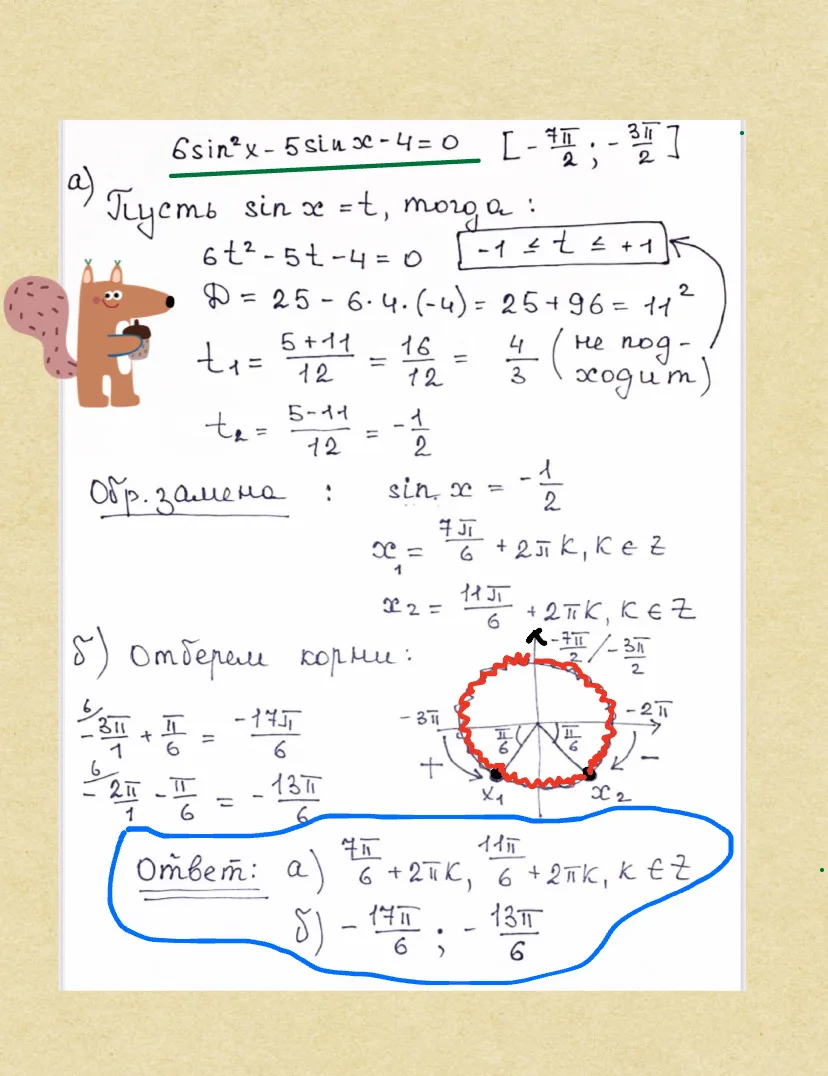 6sin²x - 5sinx - 4 = 0 [-7π/2; -3π/2]
а) Пусть sin x = t, тогда:
6t² - 5t - 4 = 0 -1 ≤ t ≤ +1
D = 25 - 6·4·(-4) = 25 + 96 = 11²
t1 = (5+11)/12 = 16/12 = 4/3 (не под-
ходит)
t2 = (5-11)/12 = -1/2
Обр. замена : sin x = -1/2
x1 = 7π/6 + 2πK, K ∈ Z
x2 = 11π/6 + 2πK, K ∈ Z
б) Отберем корни:
-7π/2 / -3π/2
-3π
-2π
π/6
π/6
+
-
x1
x2
6/ -3π/1 + π/6 = -17π/6
6/ -2π/1 - π/6 = -13π/6
Ответ: а) 7π/6 + 2πK, 11π/6 + 2πK, K ∈ Z
б) -17π/6; -13π/6